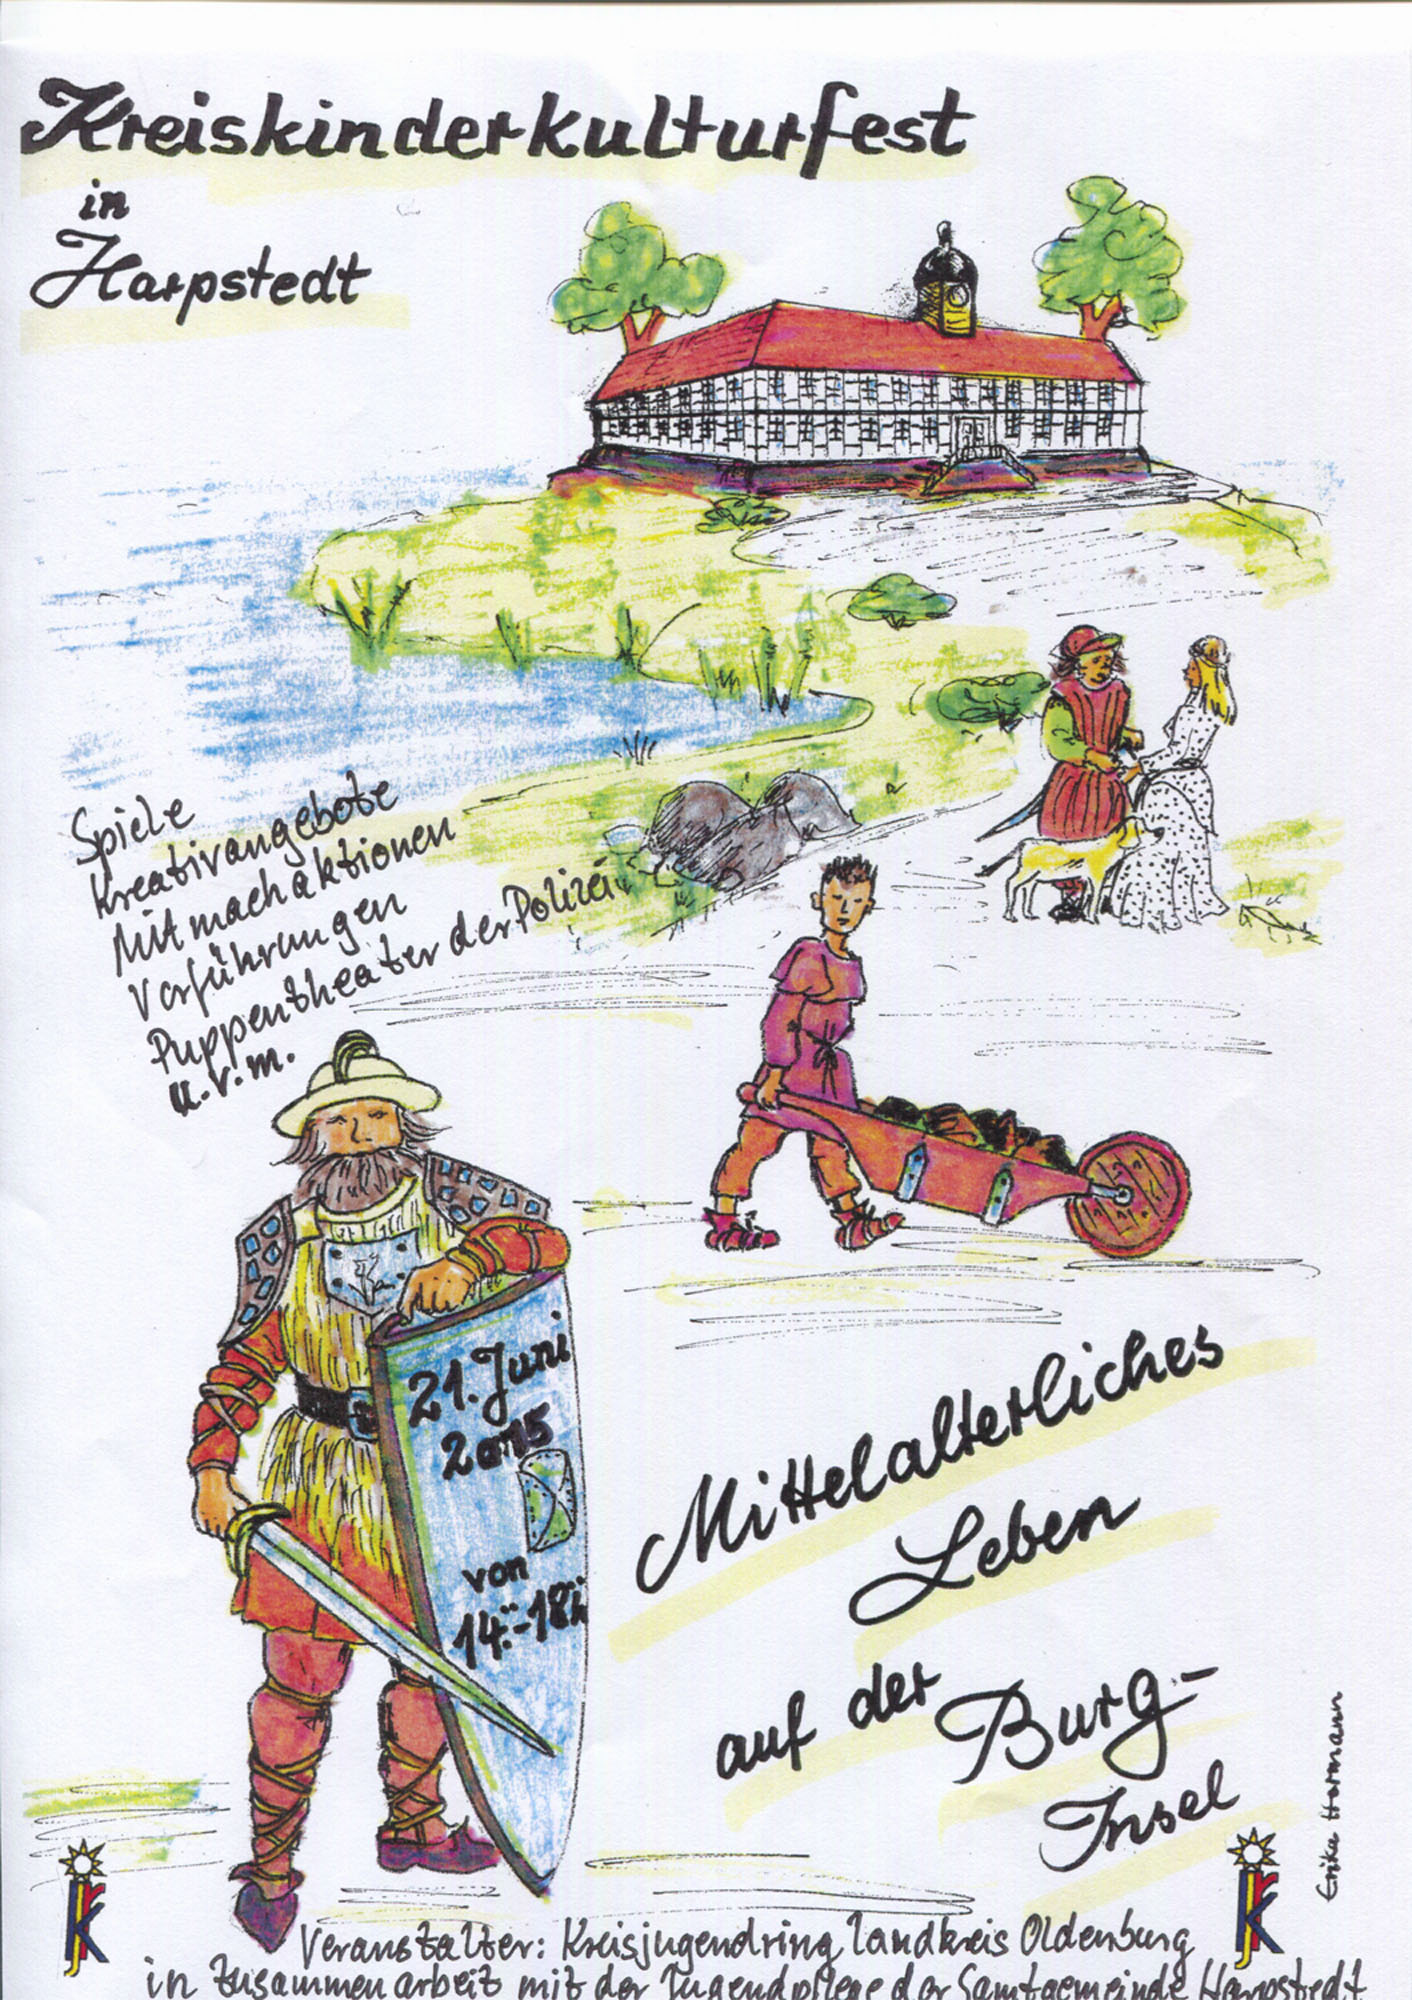 Kreiskinderkulturfest
in
Harpstedt
Spiele
Kreativangebote
Mitmachaktionen
Vorführungen
Puppentheater der Polizei
u.v.m.
21. Juni
2015
von
14:-18:
Mittelalterliches
Leben
auf der
Burg-
Insel
Erika Hormann
Veranstalter: Kreisjugendring Landkreis Oldenburg
in Zusammenarbeit mit der Jugendpflege der Samtgemeinde Harpstedt